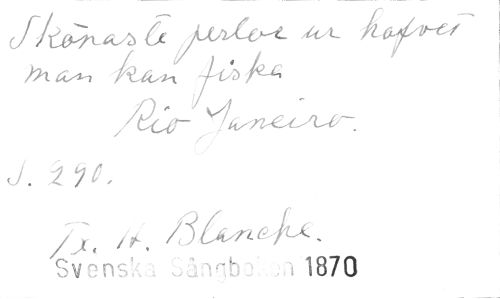 Skönaste perlor ur hafvet
man kan fiska
Rio Janeiro.
S. 290.
Tx. A. Blanche.
Svenska Sångboken 1870